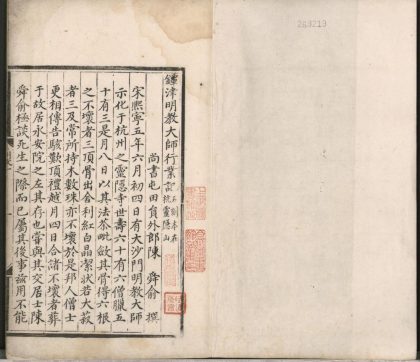 鐔津明教大師行業記 石刻本在杭靈隱山
尚書屯田員外郎陳 舜俞 撰
宋熙寧五年六月初四日有大沙門明教大師
示化于杭州之靈隱寺世壽六十有六僧臘五
十有三是月八日以其法荼毗斂其骨得六根
之不壞者三頂骨出舍利紅白晶潔狀若大菽
者三及常所持木數珠亦不壞於是邦人僧士
更相傳告駭歎頂禮越月四日合諸不壞者葬
于故居永安院之左其存也嘗與其交居士陳
舜俞極談死生之際而已屬其後事諭用不能
268219